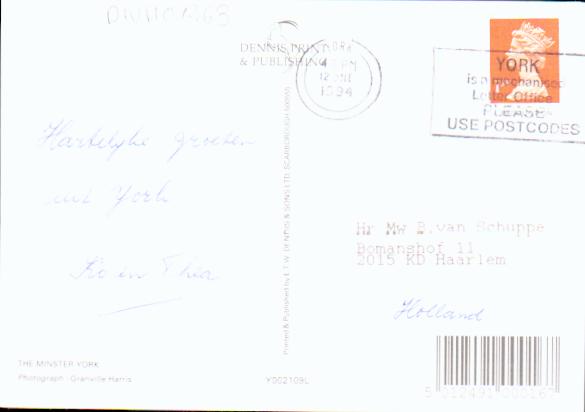 DENNIS PRINT
& PUBLISHING
YORK
PM
12 JNE
1994
YORK
is a mechanised
Letter Office
PLEASE
USE POSTCODES
Hartelijke groeten
uit York
Ko en Thea
Printed & Published by E.T.W. DENNIS & SONS LTD, SCARBOROUGH
Hr Mw B.van Schuppe
Bomanshof 11
2015 KD Haarlem
Holland
THE MINSTER YORK
Photograph : Granville Harris
Y002109L
5 012491 000167